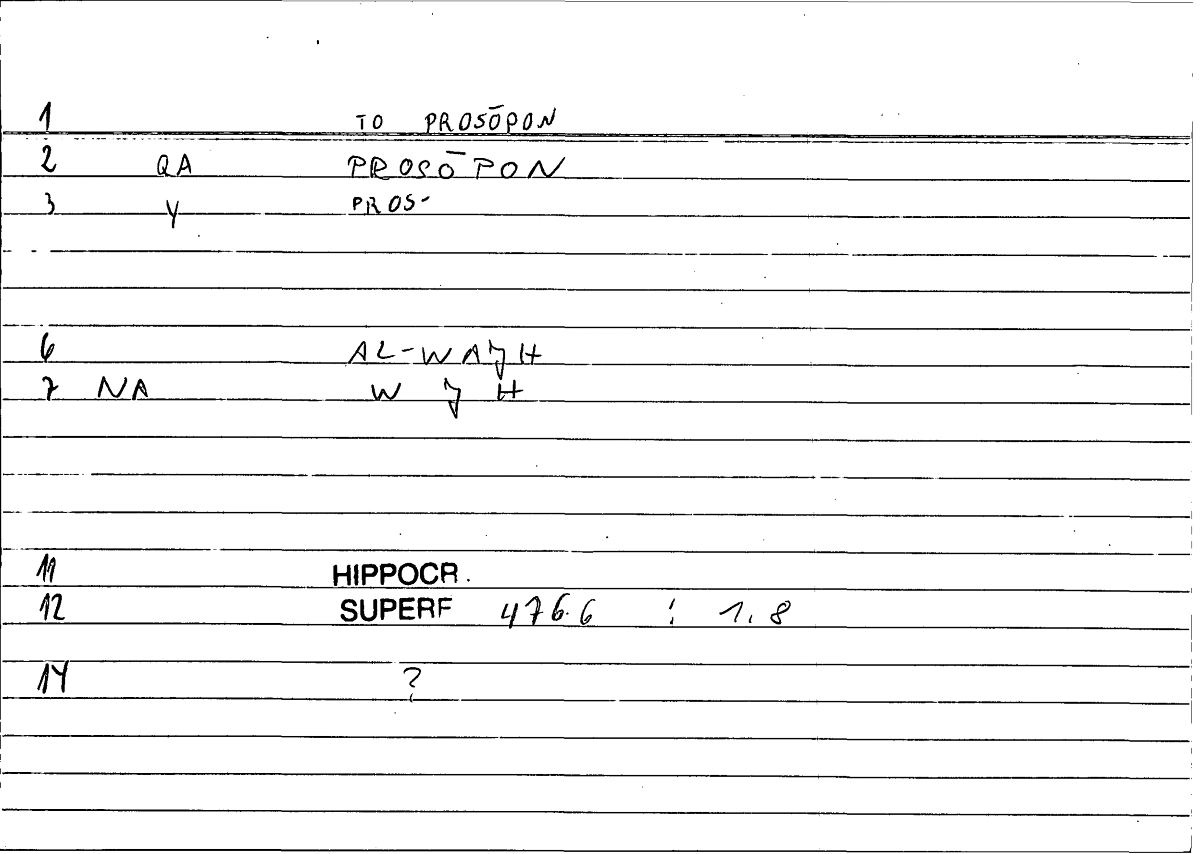 1 TO PROSŌPON
2 QA PROSŌPON
3 Y PROS-
6 AL-WAJH
7 NA W J H
11 HIPPOCR.
12 SUPERF 476.6 : 1.8
14 ?